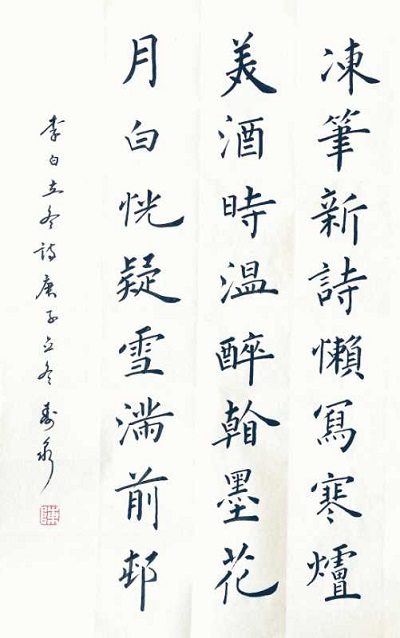 凍筆新詩懶寫寒爐
美酒時溫醉翰墨花
月白恍疑雪滿前邨
李白立冬詩庚子立冬